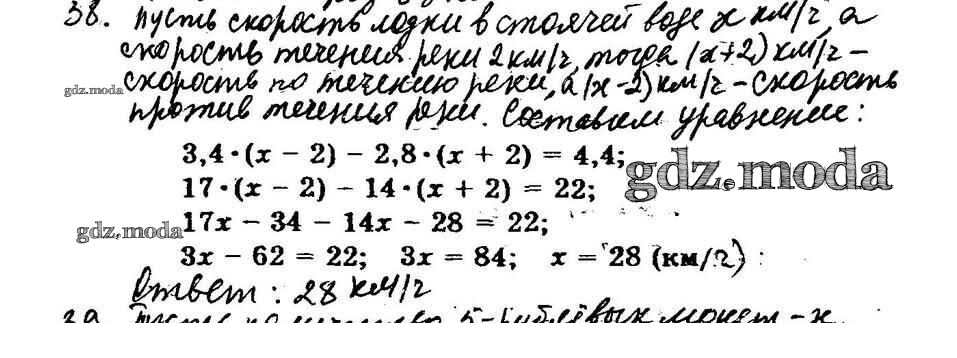 38. Пусть скорость лодки в стоячей воде x км/ч, а
скорость течения реки 2 км/ч, тогда (x+2) км/ч –
скорость по течению реки, а (x-2) км/ч – скорость
gdz.moda
против течения реки. Составим уравнение:
3,4·(x – 2) – 2,8·(x + 2) = 4,4;
gdz.moda
17·(x – 2) – 14·(x + 2) = 22;
17x – 34 – 14x – 28 = 22;
gdz.moda
3x – 62 = 22; 3x = 84; x = 28 (км/ч) :
Ответ: 28 км/ч
39. Пусть количество 5-рублёвых монет – x,